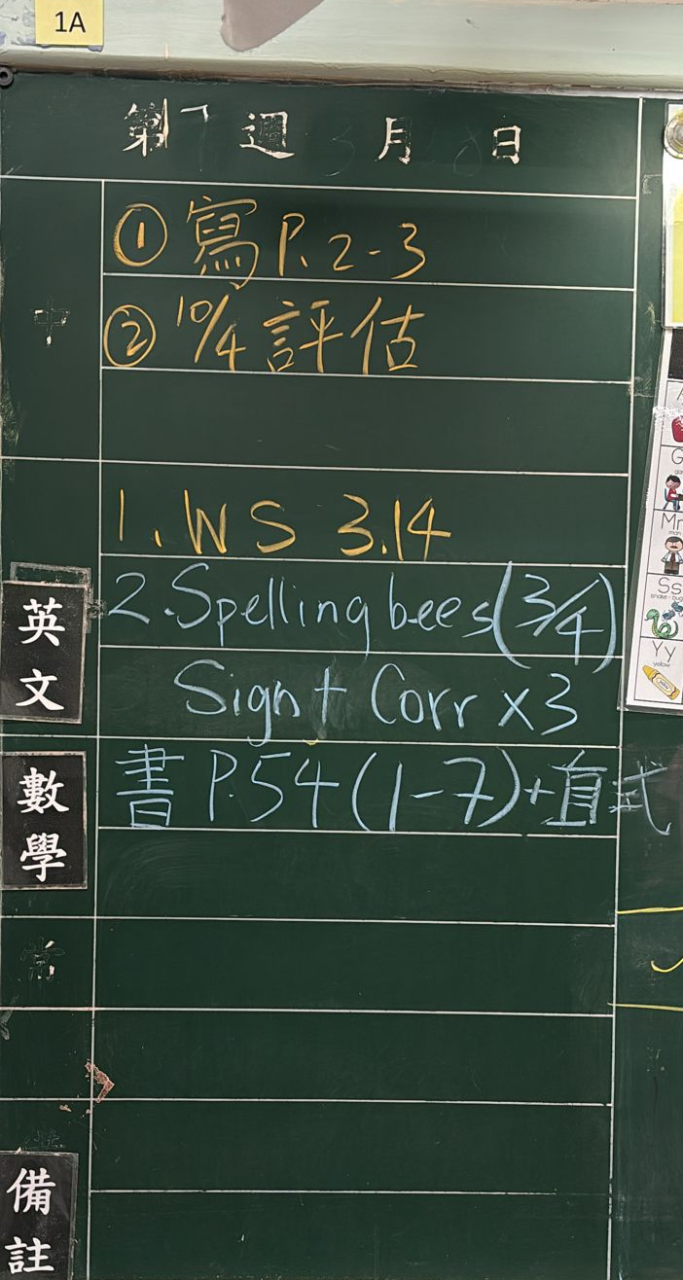 1A
第 週 月 日
中
① 寫 P. 2-3
② 10/4 評估
英文
1. WS 3.14
2. Spelling bees (3/4)
Sign + Corr x3
數學
書 P.54 (1-7)+直式
常
備註
G
Mm
Ss
Yy
yellow